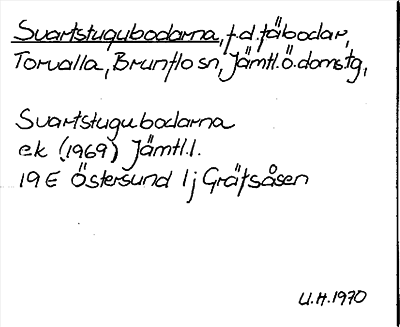 Svartstugubodarna, f.d. fäbodar,
Torvalla, Brunflo sn, Jämtl.ö.doms.tg,
Svartstugubodarna
ek (1969) Jämtl.l.
19E Östersund 1j Gräfsåsen
U.H. 1970